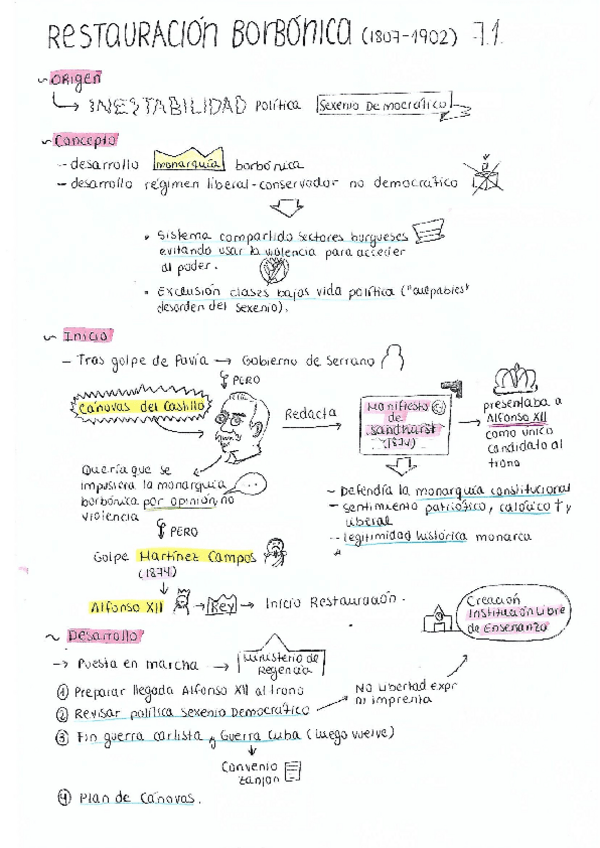 RESTAURACIÓN BORBÓNICA (1807-1902) 7.1.
~ ORIGEN
INESTABILIDAD política Sexenio Democrático
~ Concepto
- desarrollo monarquía borbónica
- desarrollo régimen liberal-conservador no democrático
• Sistema compartido sectores burgueses
evitando usar la violencia para acceder
al poder.
• Exclusión clases bajas vida política ("culpables"
desorden del sexenio).
~ Inicio
- Tras golpe de Pavía → Gobierno de Serrano
PERO
Cánovas del Castillo
Redacta
Manifiesto
de
Sandhurst
(1874)
presentaba a
Alfonso XII
como único
candidato al
trono
Quería que se
impusiera la monarquía
borbónica por opinión, no
violencia
- Defendría la monarquía constitucional
- sentimiento patriótico, católico † y
liberal
- legitimidad histórica monarca
PERO
Golpe Martínez Campos
(1874)
Alfonso XII → Rey → Inicio Restauración.
Creación
Institución Libre
de Enseñanza
~ Desarrollo
→ Puesta en marcha → Ministerio de
Regencia
① Preparar llegada Alfonso XII al trono
② Revisar política sexenio Democrático
No libertad expr
ni imprenta
③ Fin guerra carlista y Guerra Cuba (luego vuelve)
Convenio
Zanjon
④ Plan de Cánovas.